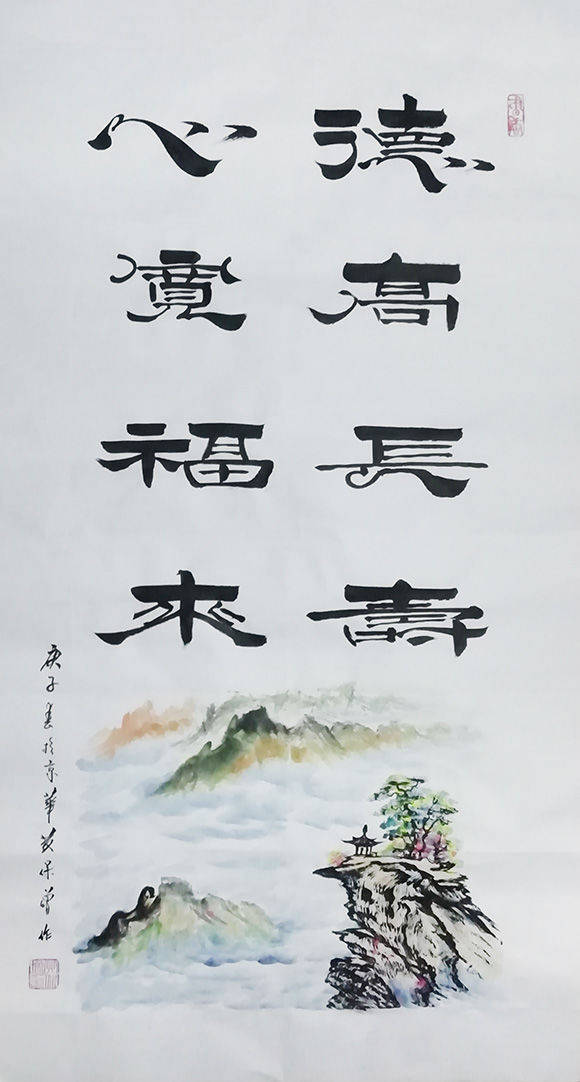 德高長壽
心寬福來
庚子春於京華作